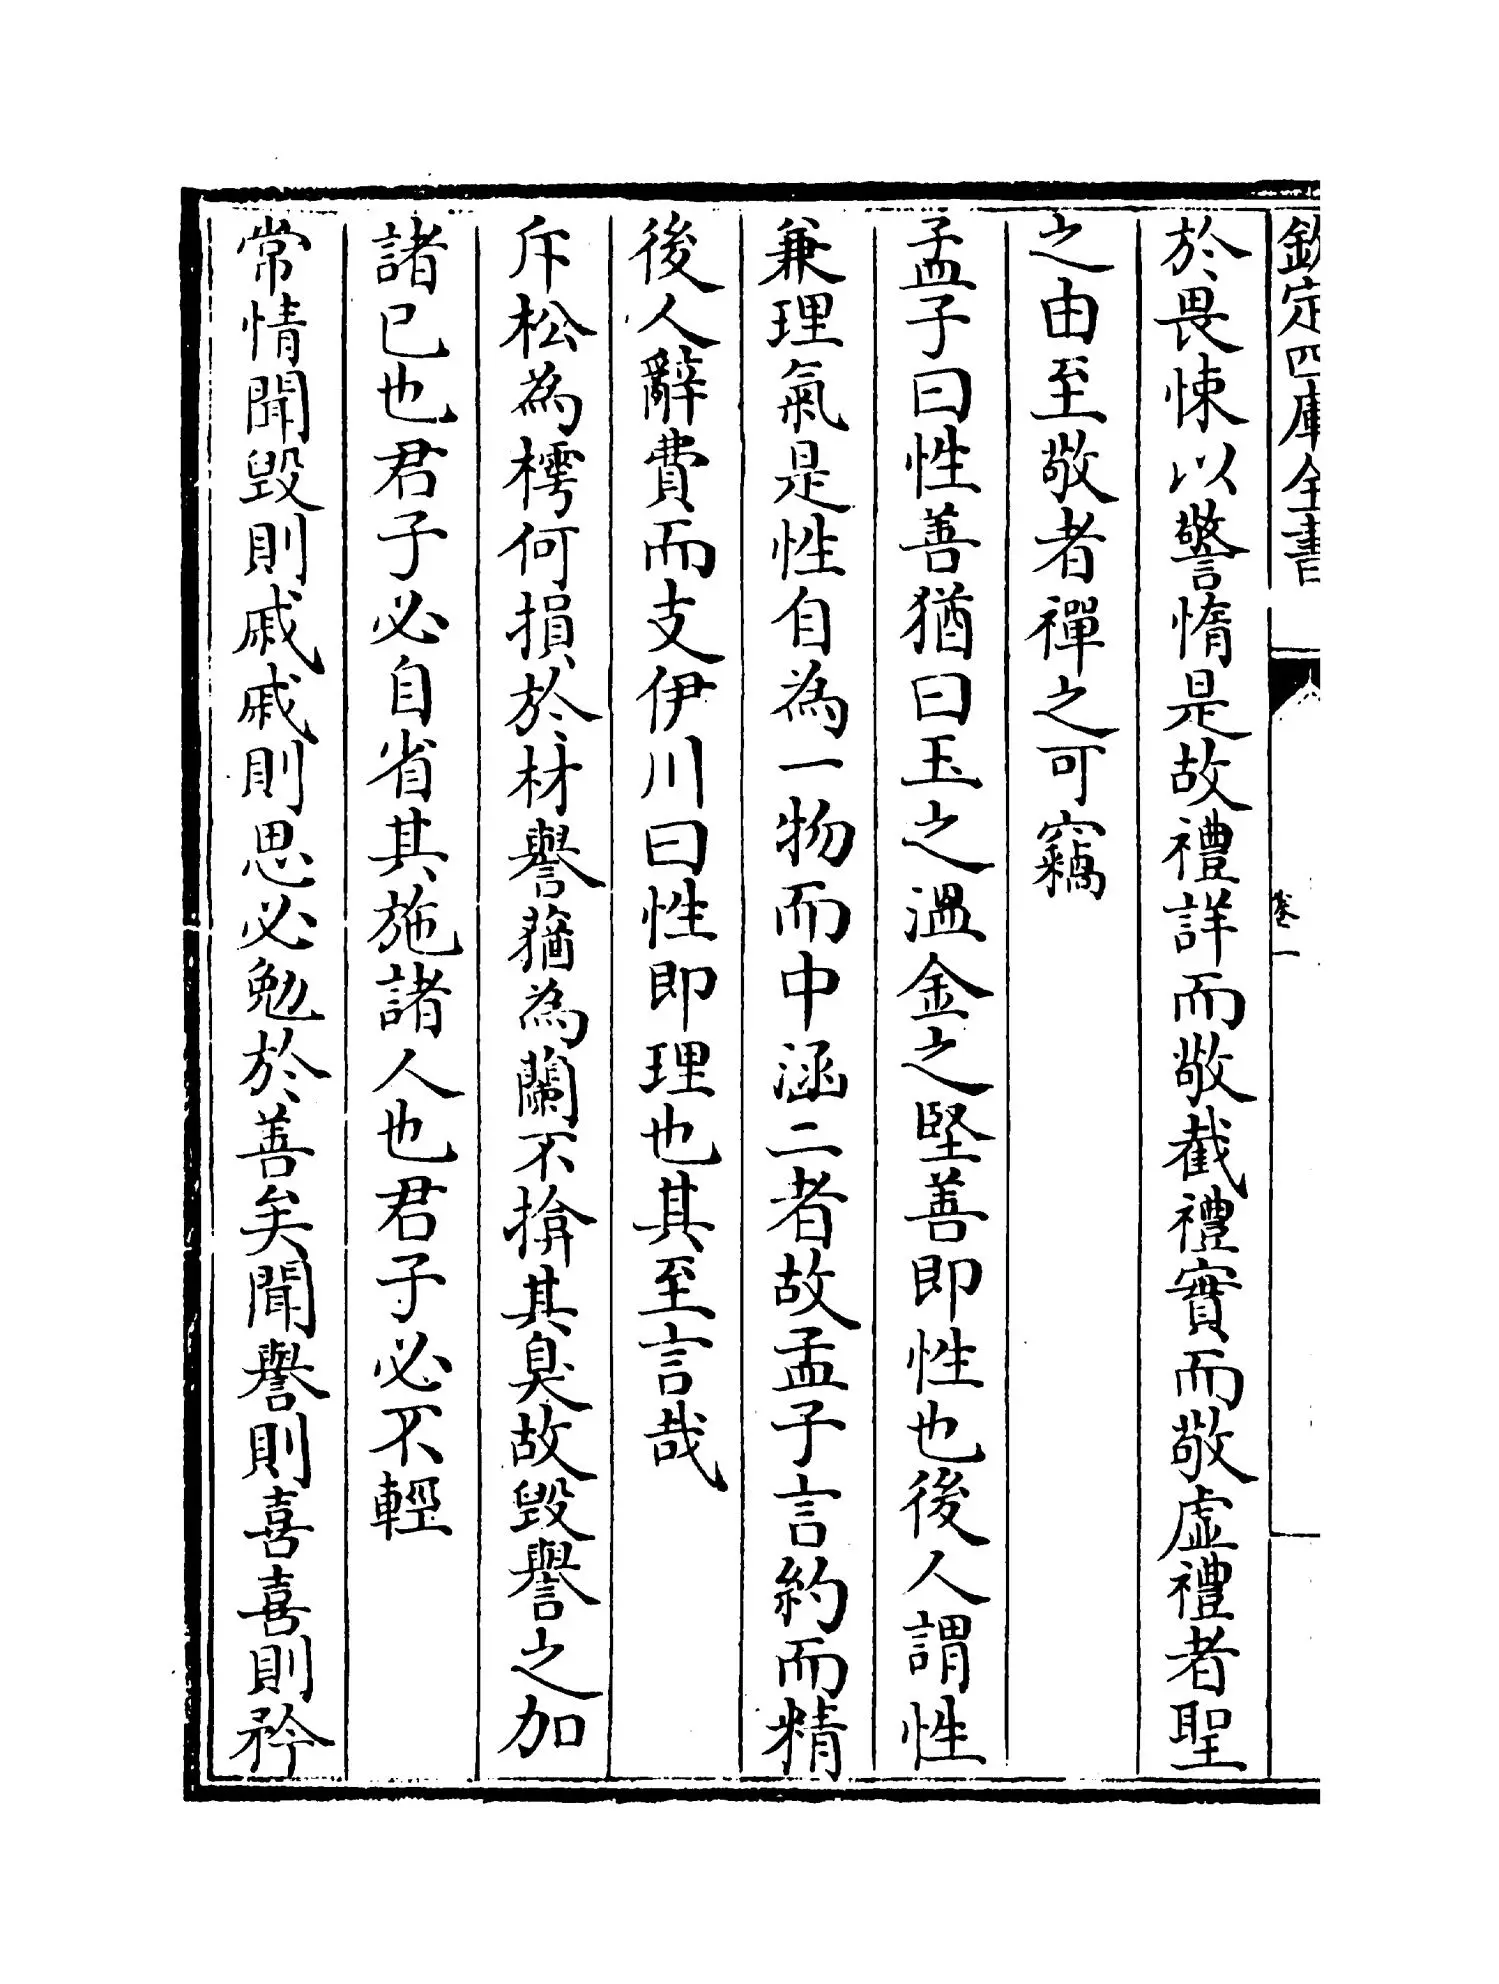 欽定四庫全書
卷一
於畏悚以警惰是故禮詳而敬截禮實而敬虛禮者聖
之由至敬者禪之可竊
孟子曰性善猶曰玉之溫金之堅善即性也後人謂性
兼理氣是性自為一物而中涵二者故孟子言約而精
後人辭費而支伊川曰性即理也其至言哉
斥松為樗何損於材譽蕕為蘭不揜其臭故毀譽之加
諸已也君子必自省其施諸人也君子必不輕
常情聞毀則戚戚則思必勉於善矣聞譽則喜喜則矜